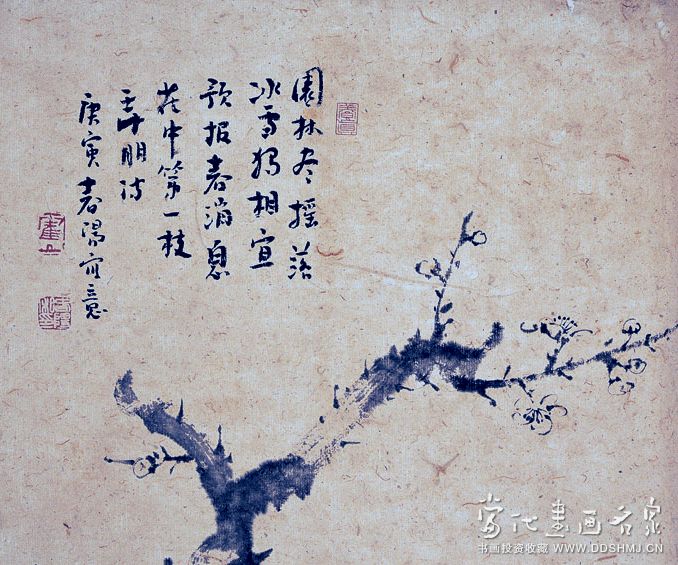 園林冬摇落
冰雪獨相宜
預报春消息
花中第一枝
明诗
庚寅春陽寫意
當代書画名家
书画投资收藏 WWW.DDSHMJ.CN